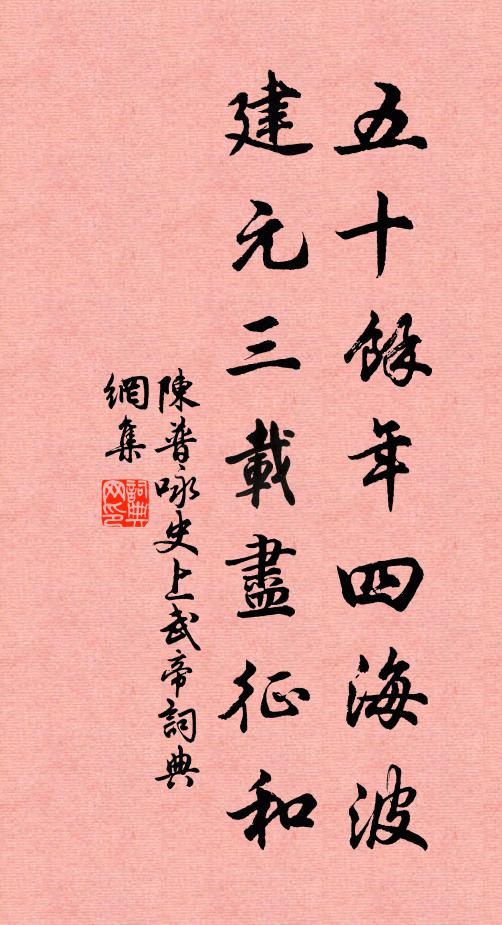 五十餘年四海波
建元三載盡征和
陳普咏史上武帝詞典
網集
詞典網印